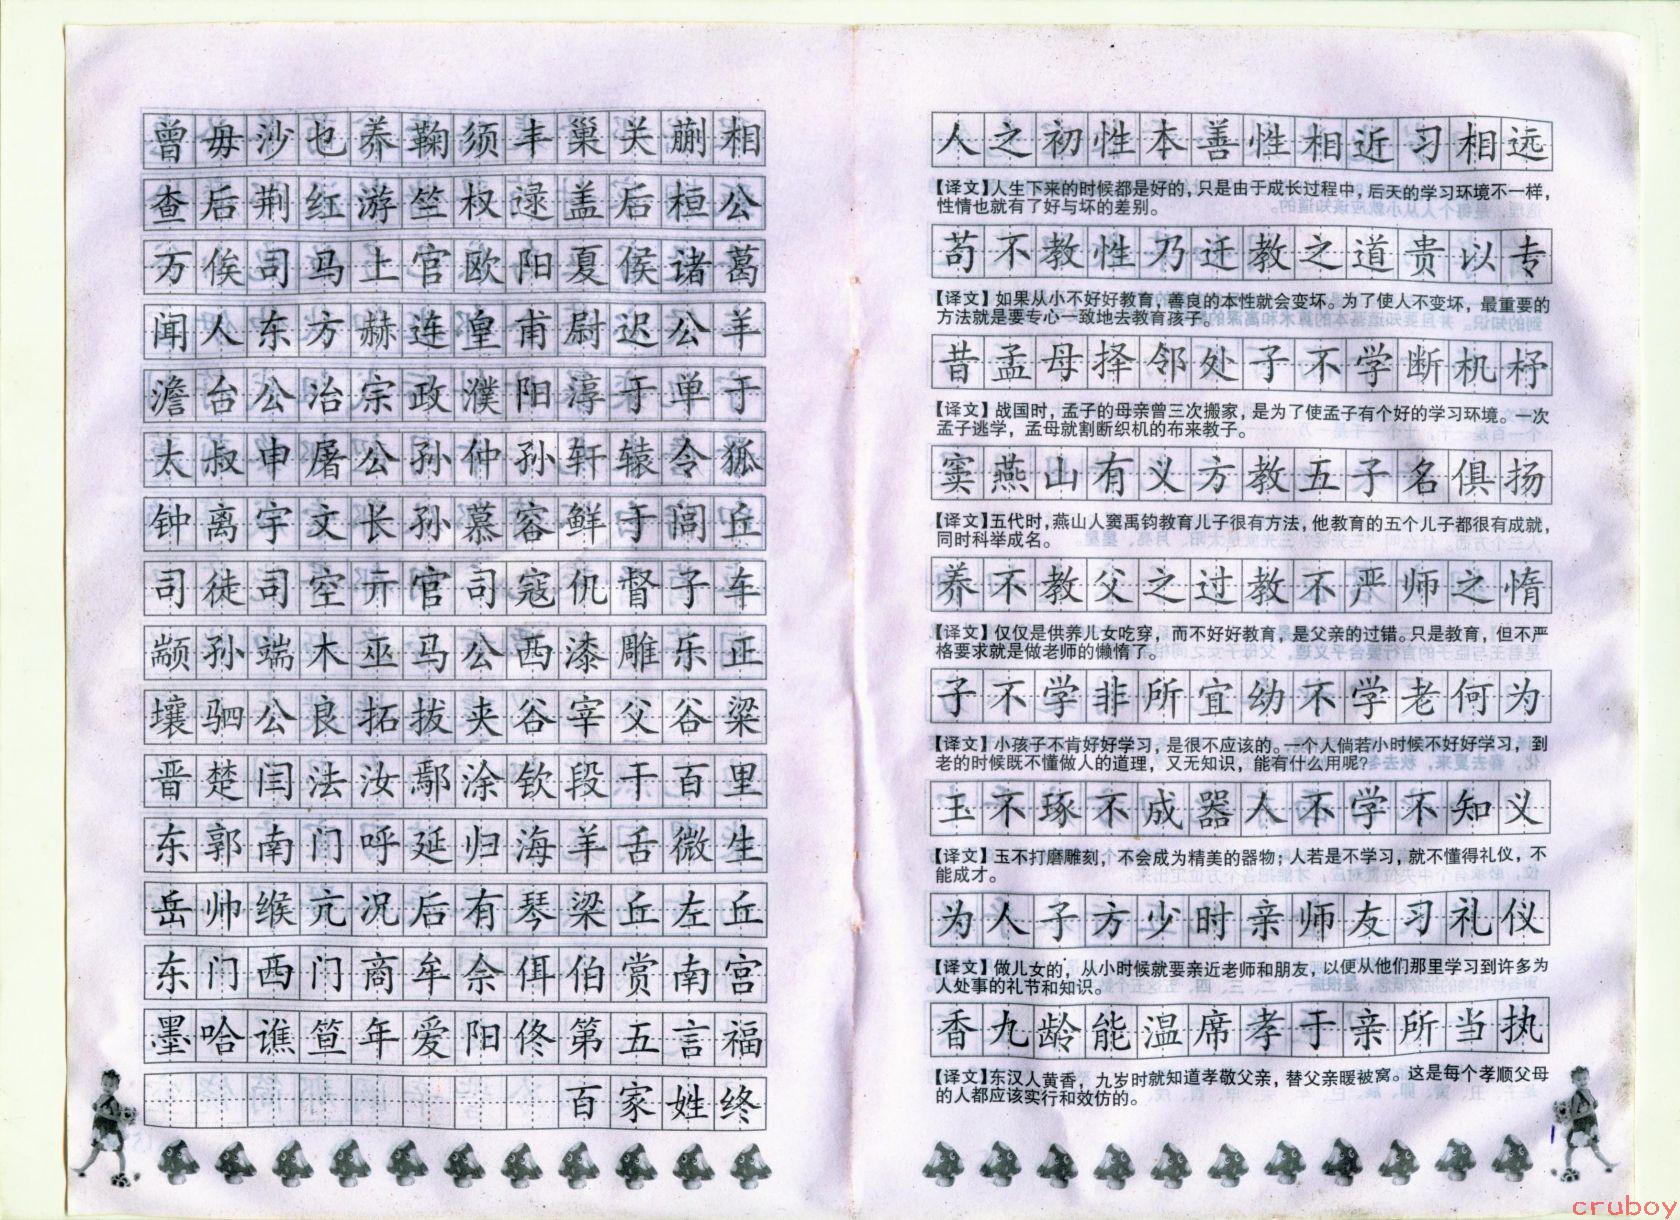 曾毋沙乜养鞠须丰巢关蒯相
查后荆红游竺权逯盖后桓公
万俟司马上官欧阳夏侯诸葛
闻人东方赫连皇甫尉迟公羊
澹台公冶宗政濮阳淳于单于
太叔申屠公孙仲孙轩辕令狐
钟离宇文长孙慕容鲜于闾丘
司徒司空亓官司寇仉督子车
颛孙端木巫马公西漆雕乐正
壤驷公良拓拔夹谷宰父谷梁
晋楚闫法汝鄢涂钦段干百里
东郭南门呼延归海羊舌微生
岳帅缑亢况后有琴梁丘左丘
东门西门商牟佘佴伯赏南宫
墨哈谯笪年爱阳佟第五言福
百家姓终
人之初性本善性相近习相远
【译文】人生下来的时候都是好的，只是由于成长过程中，后天的学习环境不一样，
性情也就有了好与坏的差别。
苟不教性乃迁教之道贵以专
【译文】如果从小不好好教育，善良的本性就会变坏。为了使人不变坏，最重要的
方法就是要专心一致地去教育孩子。
昔孟母择邻处子不学断机杼
【译文】战国时，孟子的母亲曾三次搬家，是为了使孟子有个好的学习环境。一次
孟子逃学，孟母就割断织机的布来教子。
窦燕山有义方教五子名俱扬
【译文】五代时，燕山人窦禹钧教育儿子很有方法，他教育的五个儿子都很有成就，
同时科举成名。
养不教父之过教不严师之惰
【译文】仅仅是供养儿女吃穿，而不好好教育，是父亲的过错。只是教育，但不严
格要求就是做老师的懒惰了。
子不学非所宜幼不学老何为
【译文】小孩子不肯好好学习，是很不应该的。一个人倘若小时候不好好学习，到
老的时候既不懂做人的道理，又无知识，能有什么用呢？
玉不琢不成器人不学不知义
【译文】玉不打磨雕刻，不会成为精美的器物；人若是不学习，就不懂得礼仪，不
能成才。
为人子方少时亲师友习礼仪
【译文】做儿女的，从小时候就要亲近老师和朋友，以便从他们那里学习到许多为
人处事的礼节和知识。
香九龄能温席孝于亲所当执
【译文】东汉人黄香，九岁时就知道孝敬父亲，替父亲暖被窝。这是每个孝顺父母
的人都应该实行和效仿的。
cruboy